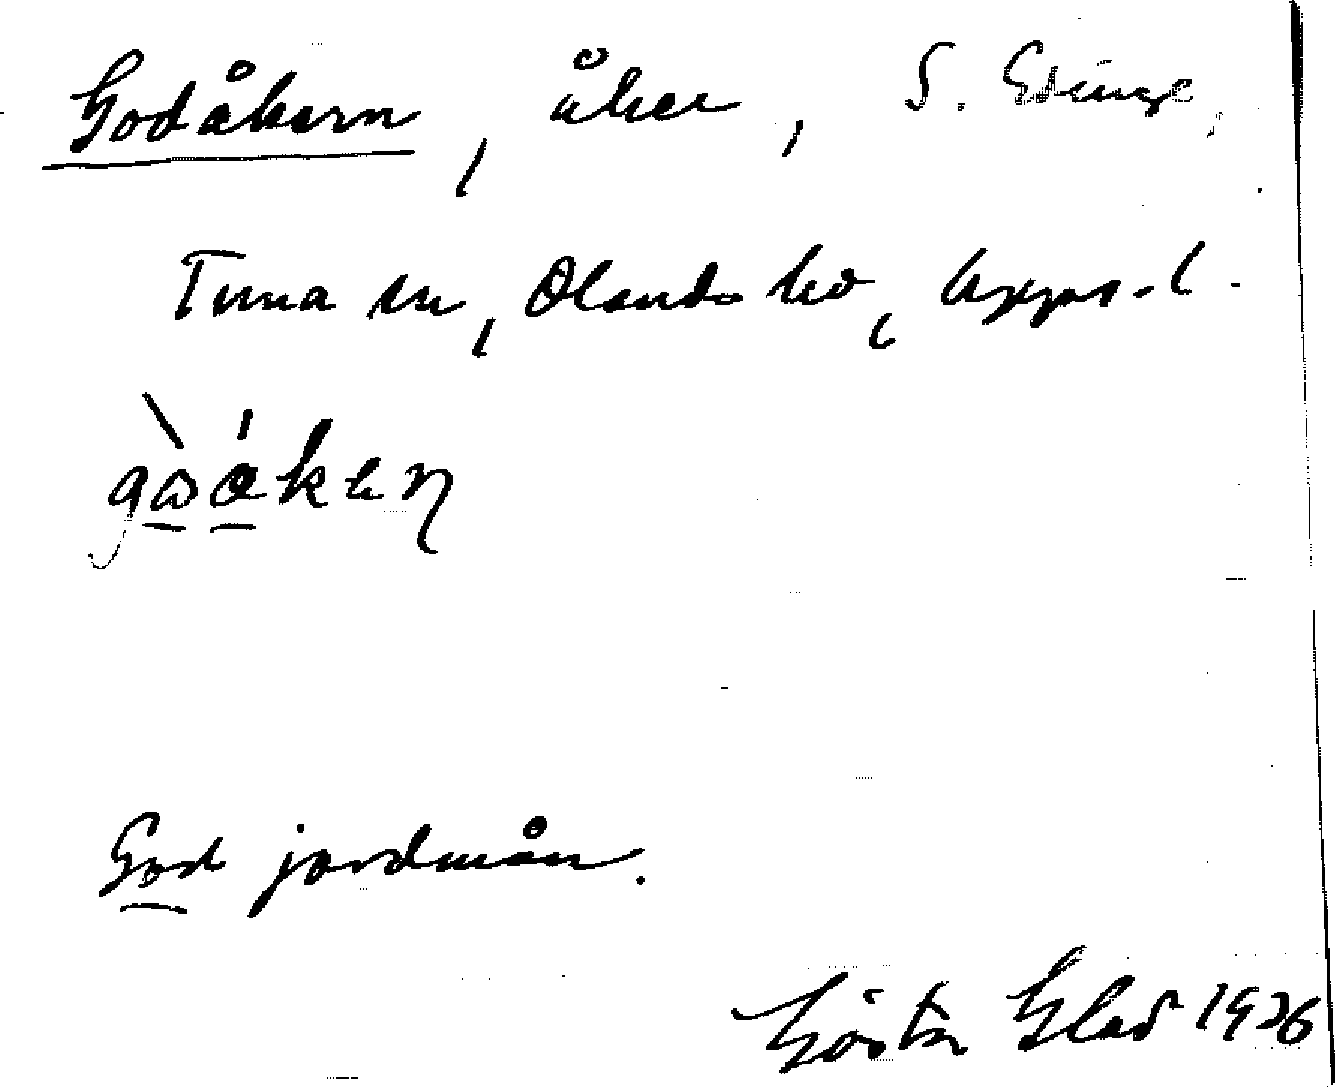 Godåkern, åker, S. Edinge,
Tuna sn, Olands hd, Upps. l.
God jordmån.
Gösta Glad 1926